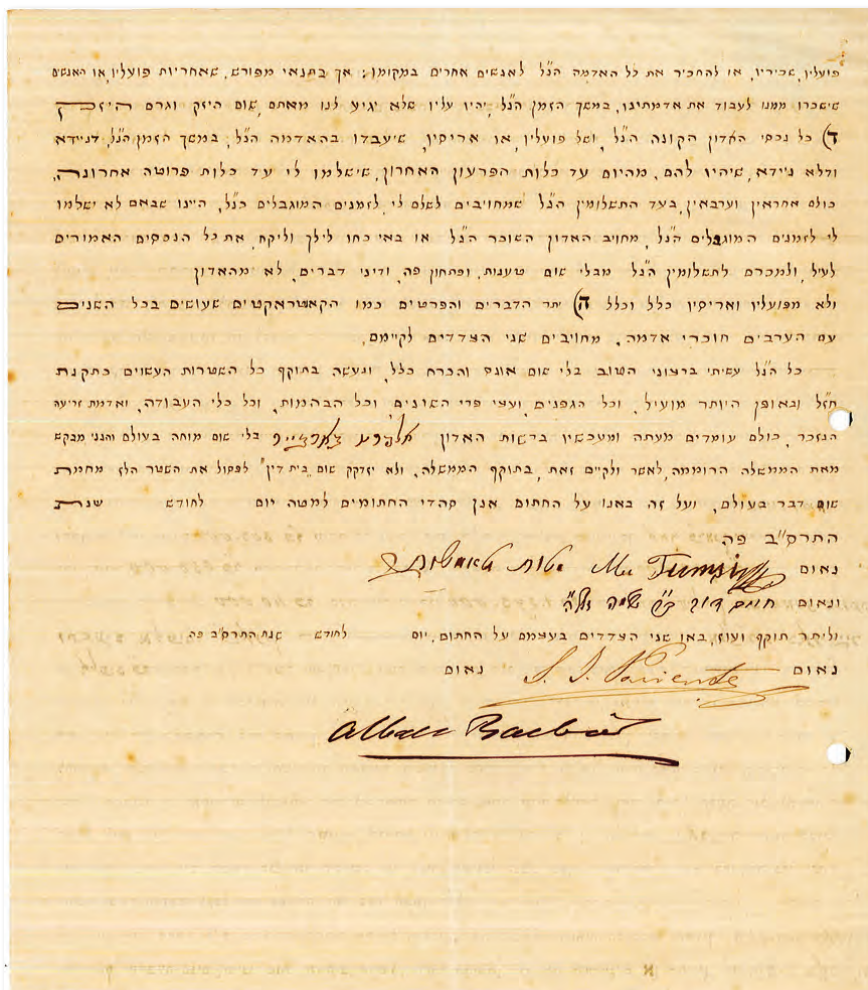 פועליו, שכיריו, או להחכיר את כל האדמה הנ״ל לאנשים אחרים במקומו; אך בתנאי מפורש, שאחריות פועליו, או האנשים
שישכרו ממנו לעבוד את אדמתינו, במשך הזמן הנ״ל, יהיו עליו שלא יגיע לנו מאתם, שום היזק וגרם היזק
ד) כל נכסי האדון הקונה הנ״ל, ושל פועליו, או אריסיו, שיעבדו בהאדמה הנ״ל, במשך הזמן הנ״ל, דניידא
ודלא ניידא, שיהיו להם, מהיום עד כלות הפרעון האחרון, שישלמו לי עד כלות פרוטה אחרונה,
כולם אחראין וערבאין, בעד התשלומין הנ״ל שמחויבים לשלם לי, לזמנים המוגבלים הנ״ל, היינו שבאם לא ישלמו
לי לזמנים המוגבלים הנ״ל, מחויב האדון השוכר הנ״ל או באי כחו לילך וליקח, את כל הנכסים האמורים
לעיל, ולמכרם לתשלומין הנ״ל מבלי שום טענות, ופתחון פה, ודיני דברים, לא מהאדון
ולא מפועליו ואריסיו כלל וכלל ה) יתר הדברים והפרטים כמו הקאטראקטים שעושים בכל השנים
עם הערבים חוכרי אדמה, מחויבים שני הצדדים לקיימם,
כל הנ״ל עשיתי ברצוני הטוב בלי שום אונס והכרח כלל, ונעשה בתוקף כל השטרות העשוים כתקנת
חז״ל ובאופן היותר מועיל, וכל הגפנים, ועצי פרי השונים וכל הבהמות, וכל כלי העבודה, ואדמת זריעה
הנזכר, כולם עומדים מעתה ומעכשיו ברשות האדון בלי שום מוחה בעולם והנני מבקש
מאת הממשלה הרוממה, לאשר ולקיים זאת, בתוקף הממשלה, ולא יזדקק שום בית דין לפסול את השטר הלז מחמת
שום דבר בעולם, ועל זה באנו על החתום אנן סהדי החתומים למטה יום לחודש שנת
התרס״ב פה
נאום
ונאום חיים דוד
וליתר תוקף ועוז, באו שני הצדדים בעצמם על החתום, יום לחודש שנת התרס״ב פה
נאום S. I. Pariente נאום